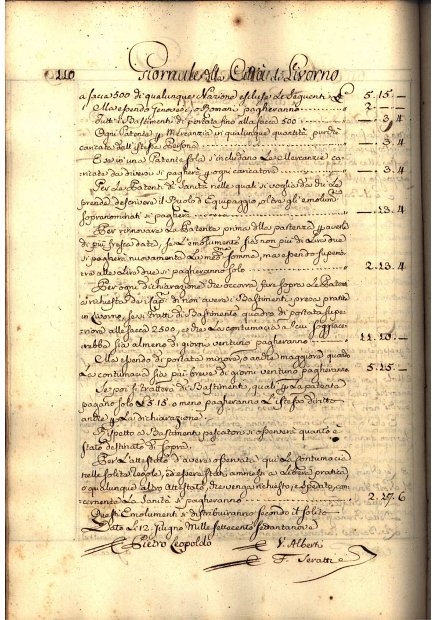 210 Giornale della Città di Livorno
a sacca 500 di qualunque Nazione escluse Le Seguenti £ 5.15.—
Ma essendo Genovesi, o Romani pagheranno 2.—
Tutti i Bastimenti di portata fino alla sacca 500 —.3.4
Ogni Patente p Mercanzia in qualunque quantità purchè
caricata dall'istessa Persona —.3.4
E se in una Patente sola s'includano Le Mercanzie ca-
ricate da diversi si pagherà p ogni caricatore —.3.4
Per Le Patenti di Sanità nelle quali si voglia
descrivere il Ruolo di Equipaggio oltre gl'emolum
soprannominati si pagherà —.13.4
Per rinnovare La Patente prima della partenza p averla
di più fresca data, se L'emolumento sia non più di Lire due
si pagherà nuovamente La med somma, ma essendo superio
re alle Lire due si pagheranno solo 2.13.4
Per ogni dichiarazione che occorra fare sopra Le Patenti
a richiesta dei Cap di non avere i Bastimenti presa pratica
in Livorno, se si tratti di Bastimento quadro di portata supe-
riore alle sacca 2500, et che La contumacia a cui soggiace-
rebbe sia almeno di giorni ventuno pagheranno 11.10.—
Ma essendo di portata minore, o anche maggiore quando
La contumacia sia più breve di giorni ventuno pagheranno 5.15.—
Se poi si tratterà di Bastimenti, quali p La patente
pagano solo £ 5.15 o meno pagheranno L'istesso diritto
anche p La dichiarazione.
Rispetto a Bastimenti pescatori si osserverà quanto è
stato destinato di sopra
Per L'attestato d'avere osservata qui La contumacia
nelle solite regole, ed essere stati ammessi a Libera pratica
o qualunque altro attestato, che venga richiesto, e spedito, con-
cernente La Sanità si pagheranno 2.17.6
Questi Emolumenti si distribuiranno secondo il solito
Dato Li 12. Giugno Mille Settecento
Pietro Leopoldo V. Alberti
F. Seratti